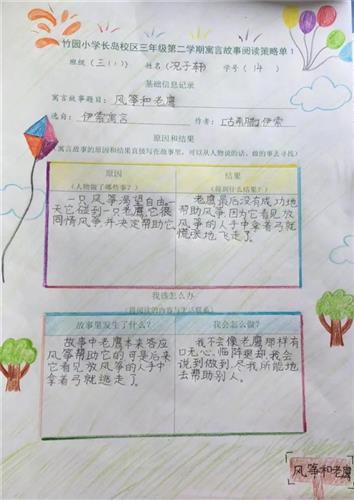 竹园小学长岛校区三年级第二学期寓言故事阅读策略单1
班级（三11） 姓名（况子韩） 学号（14）
基础信息记录
寓言故事题目：风筝和老鹰
选自：伊索寓言 作者：[古希腊]伊索
原因和结果
寓言故事的原因和结果直接写在故事里，可以从人物说的话、做的事去寻找）
原因
（人物做了哪些事？）
一只风筝渴望自由一
天它碰到一只老鹰，它很
同情风筝并决定帮助它
结果
（得到什么结果？）
老鹰最后没有成功地
帮助风筝，因为它看见放
风筝的人手中拿着弓就
慌张地飞走了。
我该怎么办
（将阅读的内容与生活联系）
故事里发生了什么？
故事中老鹰本来答应
风筝帮助它的可是后来
它看见放风筝的人手中
拿着弓就逃走了。
我会怎么做？
我不会像老鹰那样有
口无心，临阵退却，我会
说到做到，尽我所能地
去帮助别人。
风筝和老鹰